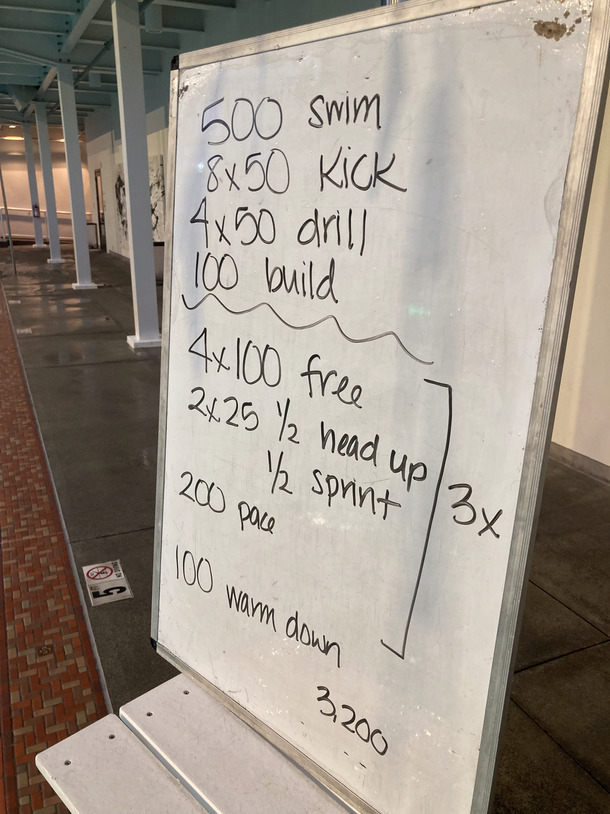 500 swim
8x50 Kick
4x50 drill
100 build
4x100 free
2x25 1/2 head up
1/2 sprint
200 pace
100 warm down
3x
3,200
5